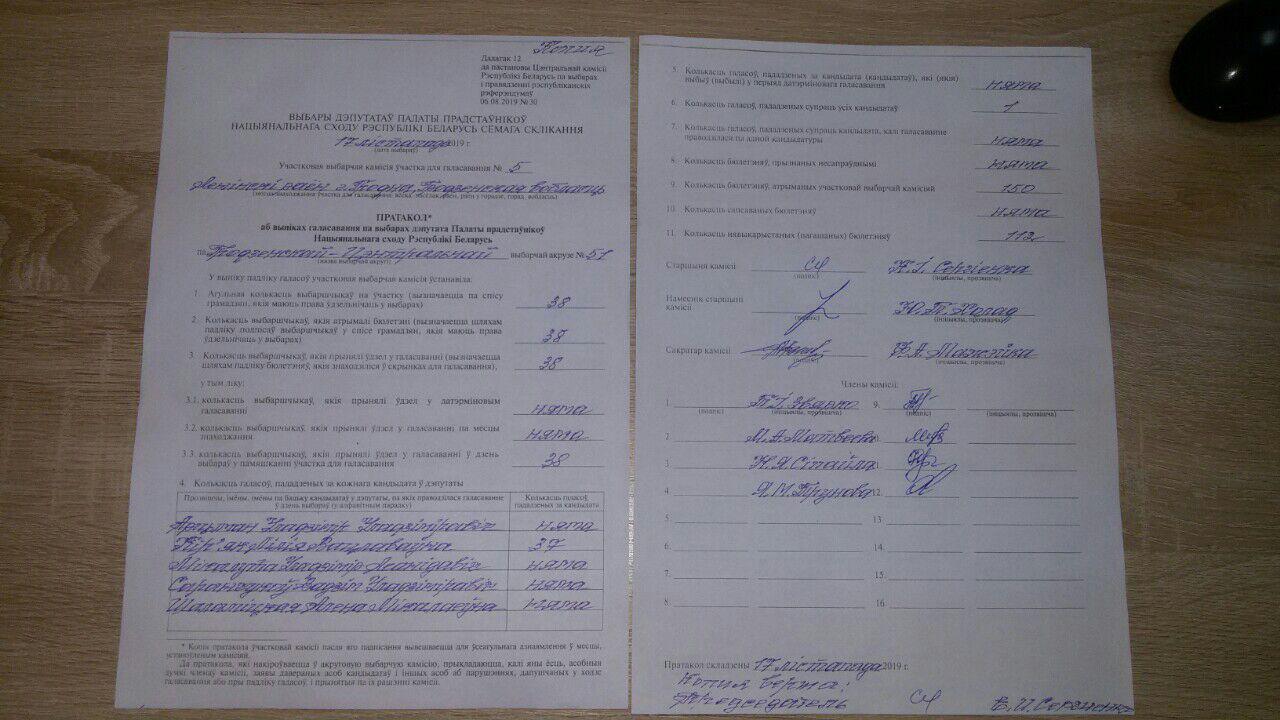 Копия
Дадатак 12
да пастановы Цэнтральнай камісіі
Рэспублікі Беларусь па выбарах
і правядзенні рэспубліканскіх
рэферэндумаў
06.08.2019 № 30
ВЫБАРЫ ДЭПУТАТАЎ ПАЛАТЫ ПРАДСТАЎНІКОЎ
НАЦЫЯНАЛЬНАГА СХОДУ РЭСПУБЛІКІ БЕЛАРУСЬ СЁМАГА СКЛІКАННЯ
17 лістапада 2019 г.
(дата выбараў)
Участковая выбарчая камісія участка для галасавання № 5
Ленінскі раён г. Гродна, Гродзенская вобласць
ПРАТАКОЛ*
аб выніках галасавання па выбарах дэпутата Палаты прадстаўнікоў
Нацыянальнага сходу Рэспублікі Беларусь
па Гродзенскай-Цэнтральнай выбарчай акрузе № 51
(назва выбарчай акругі)
У выніку падліку галасоў участковая выбарчая камісія ўстанавіла:
1. Агульная колькасць выбаршчыкаў на ўчастку (вызначаецца па спісу
грамадзян, якія маюць права ўдзельнічаць у выбарах) 38
2. Колькасць выбаршчыкаў, якія атрымалі бюлетэні (вызначаецца шляхам
падліку подпісаў выбаршчыкаў у спісе грамадзян, якія маюць права
ўдзельнічаць у выбарах) 38
3. Колькасць выбаршчыкаў, якія прынялі ўдзел у галасаванні (вызначаецца
шляхам падліку бюлетэняў, якія знаходзіліся ў скрынках для галасавання), 38
у тым ліку:
3.1. колькасць выбаршчыкаў, якія прынялі ўдзел у датэрміновым
галасаванні няма
3.2. колькасць выбаршчыкаў, якія прынялі ўдзел у галасаванні па месцы
знаходжання няма
3.3. колькасць выбаршчыкаў, якія прынялі ўдзел у галасаванні ў дзень
выбараў у памяшканні ўчастка для галасавання 38
4. Колькасць галасоў, пададзеных за кожнага кандыдата ў дэпутаты
Прозвішча, імёны, імёны па бацьку кандыдатаў у дэпутаты, па якіх праводзілася галасаванне
ў дзень выбараў (у алфавітным парадку)
Колькасць галасоў,
пададзеных за кандыдата
Уладзімір Уладзіміравіч няма
Лілія Вацлаваўна 37
Уладзімір няма
Вадзім Уладзіміравіч няма
Алена Мікалаеўна няма
* Копія пратакола ўчастковай камісіі пасля яго падпісання вывешваецца для ўсеагульнага азнаямлення ў месцы,
устаноўленым камісіяй.
Да пратакола, які накіроўваецца ў акруговую выбарчую камісію, прыкладаюцца, калі яны ёсць, асобныя
думкі членаў камісіі, заявы давераных асоб кандыдатаў і іншых асоб аб парушэннях, дапушчаных у ходзе
галасавання або пры падліку галасоў, і прынятыя па іх рашэнні камісіі.
5. Колькасць галасоў, пададзеных за кандыдата (кандыдатаў), які (якія)
выбыў (выбылі) у перыяд датэрміновага галасавання няма
6. Колькасць галасоў, пададзеных супраць усіх кандыдатаў 1
7. Колькасць галасоў, пададзеных супраць кандыдата, калі галасаванне
праводзілася па адной кандыдатуры няма
8. Колькасць бюлетэняў, прызнаных несапраўднымі няма
9. Колькасць бюлетэняў, атрыманых участковай выбарчай камісіяй 150
10. Колькасць сапсаваных бюлетэняў няма
11. Колькасць нявыкарыстаных (пагашаных) бюлетэняў 112
Старшыня камісіі
(подпіс) (ініцыялы, прозвішча)
Намеснік старшыні
камісіі Холад
(подпіс) (ініцыялы, прозвішча)
Сакратар камісіі
(ініцыялы, прозвішча)
Члены камісіі:
1. 9.
(подпіс) (ініцыялы, прозвішча) (подпіс) (ініцыялы, прозвішча)
2 М.А.
3
4 12.
5. 13.
6. 14.
7. 15.
8. 16.
Пратакол складзены 17 лістапада 2019 г.
Копия верна:
Председатель